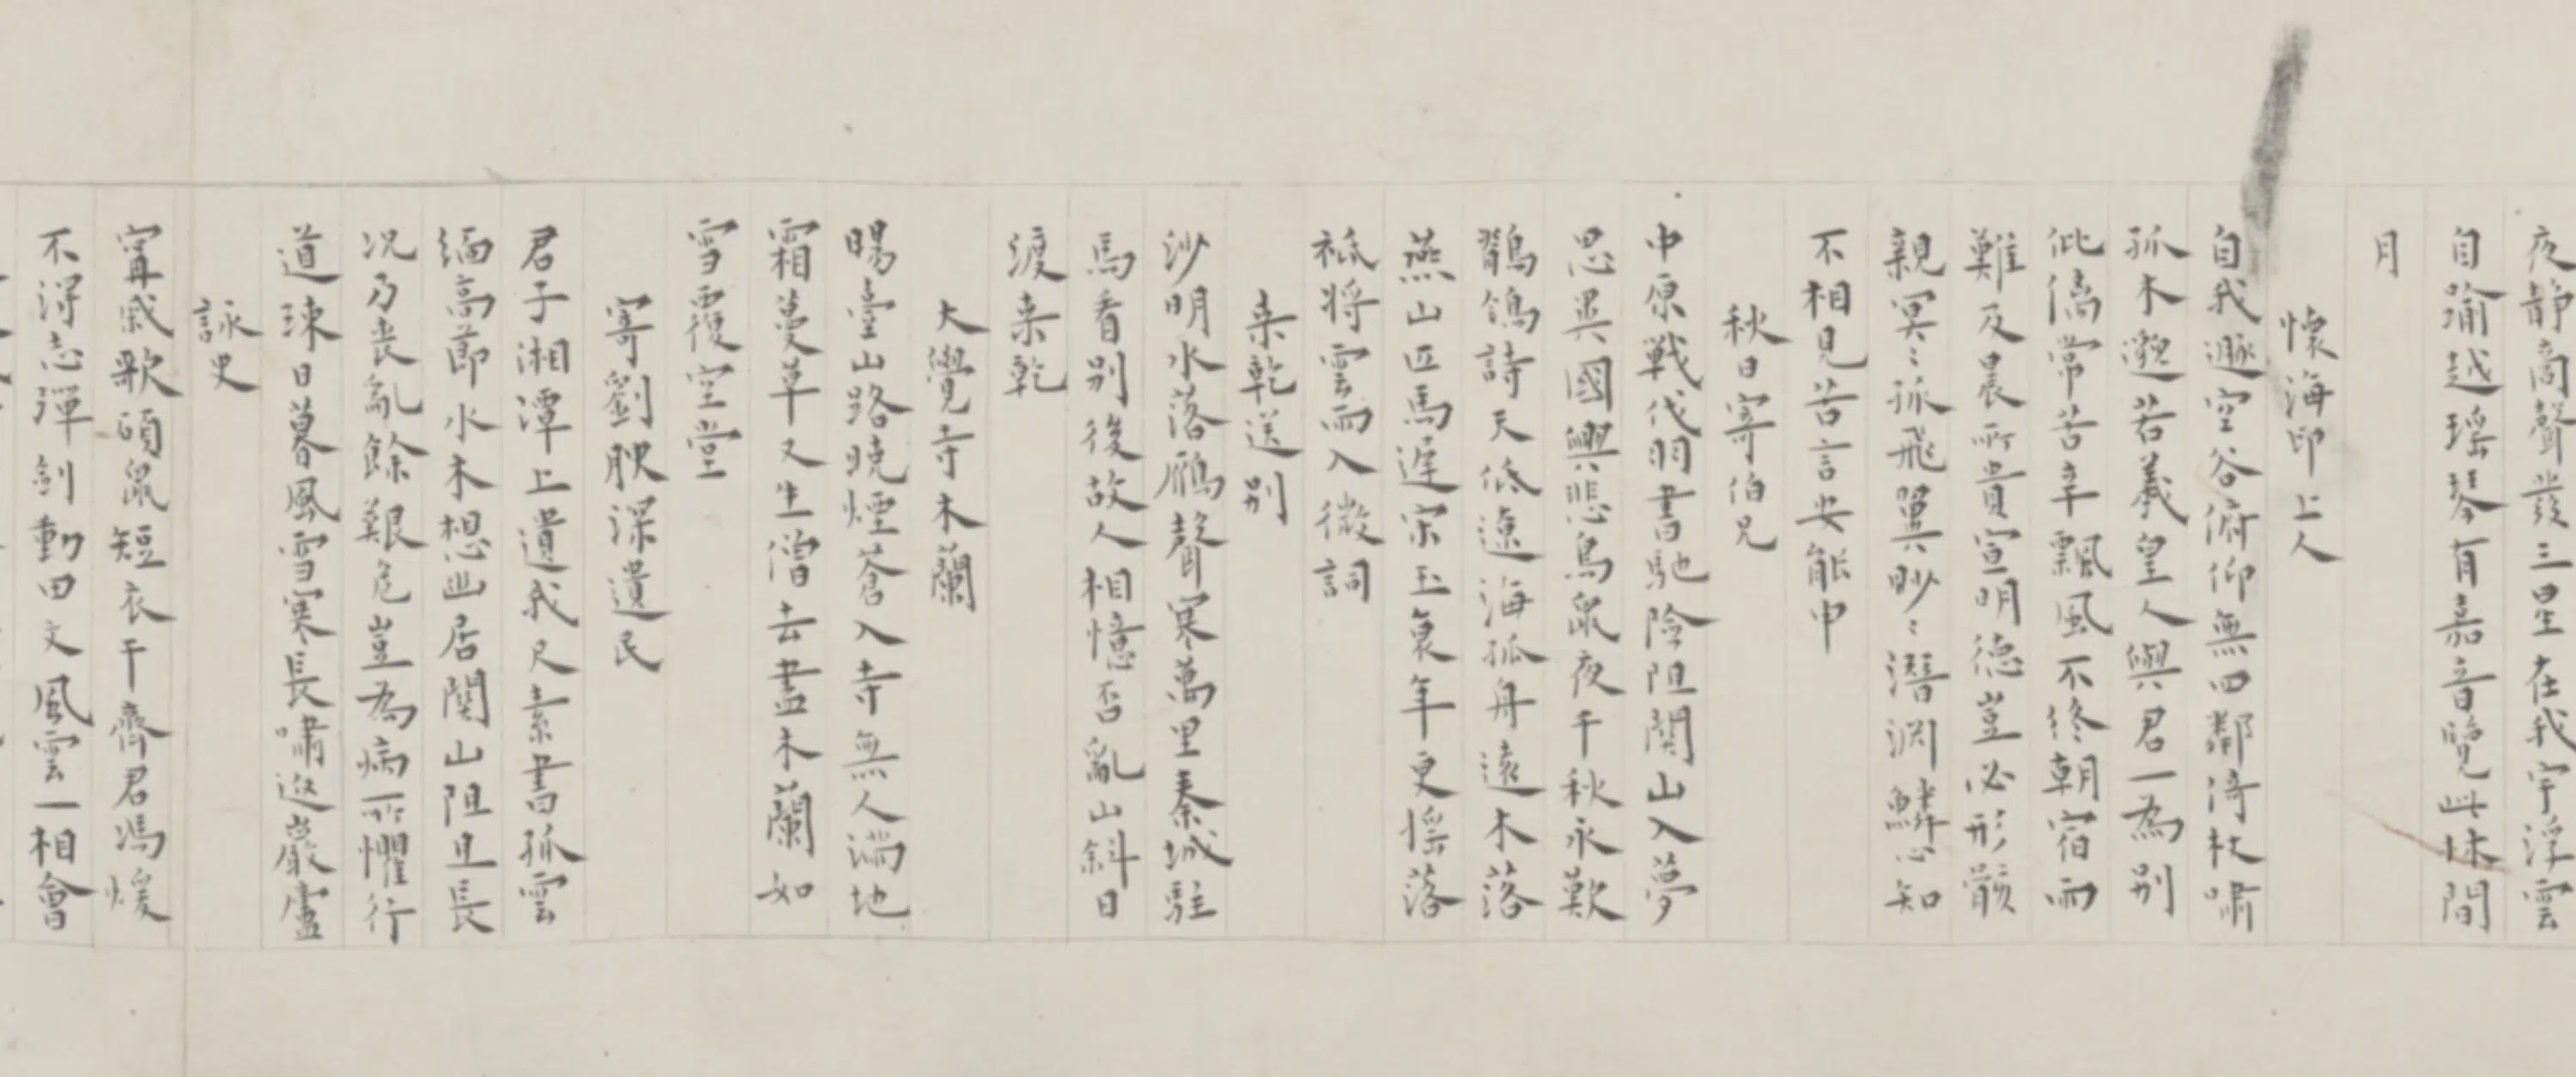 夜静商聲發三星在我宇浮雲
自踰越瑶琴有嘉音覽此休間
月
懷海印上人
自我遯空谷俯仰無四鄰漪杖嘯
孤木邈若羲皇人與君一為别
此僑常苦辛飄風不終朝宿而
難及晨所貴宣明德豈必形骸
親冥〻孤飛翼眇〻潛渊鱗心知
不相見苦言安能申
秋日寄伯兄
中原戰伐羽書馳險阻關山入夢
思異國興悲鳥鼠夜千秋永歎
鶺鴒詩天低遼海孤舟遠木落
燕山匹馬遲宋玉衰年更摇落
祗将雲雨入微詞
桒乾送别
沙明水落鴈聲寒萬里秦城駐
馬看别後故人相憶否亂山斜日
渡桒乾
大覺寺木蘭
暘臺山路曉煙蒼入寺無人满地
霜蔓草又生僧去盡木蘭如
雪覆空堂
寄劉腴深遺民
君子湘潭上遺我尺素書孤雲
緬高節水木想幽居關山阻且長
况乃丧亂餘艱危豈為病所懼行
道踈日暮風雪寒長嘯返巖廬
詠史
甯戚歌碩鼠短衣干齊君馮煖
不得志彈劍動田文風雲一相會